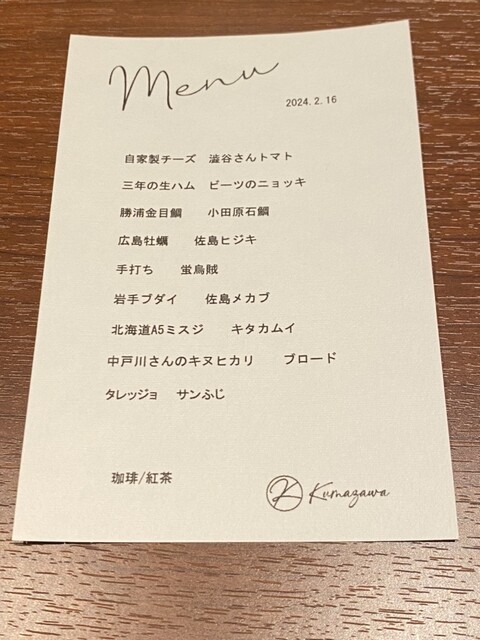 Menu
2024.2.16
自家製チーズ　澁谷さんトマト
三年の生ハム　ビーツのニョッキ
勝浦金目鯛　小田原石鯛
広島牡蠣　佐島ヒジキ
手打ち　蛍烏賊
岩手ブダイ　佐島メカブ
北海道A5ミスジ　キタカムイ
中戸川さんのキヌヒカリ　ブロード
タレッジョ　サンふじ
珈琲/紅茶
K Kumazawa